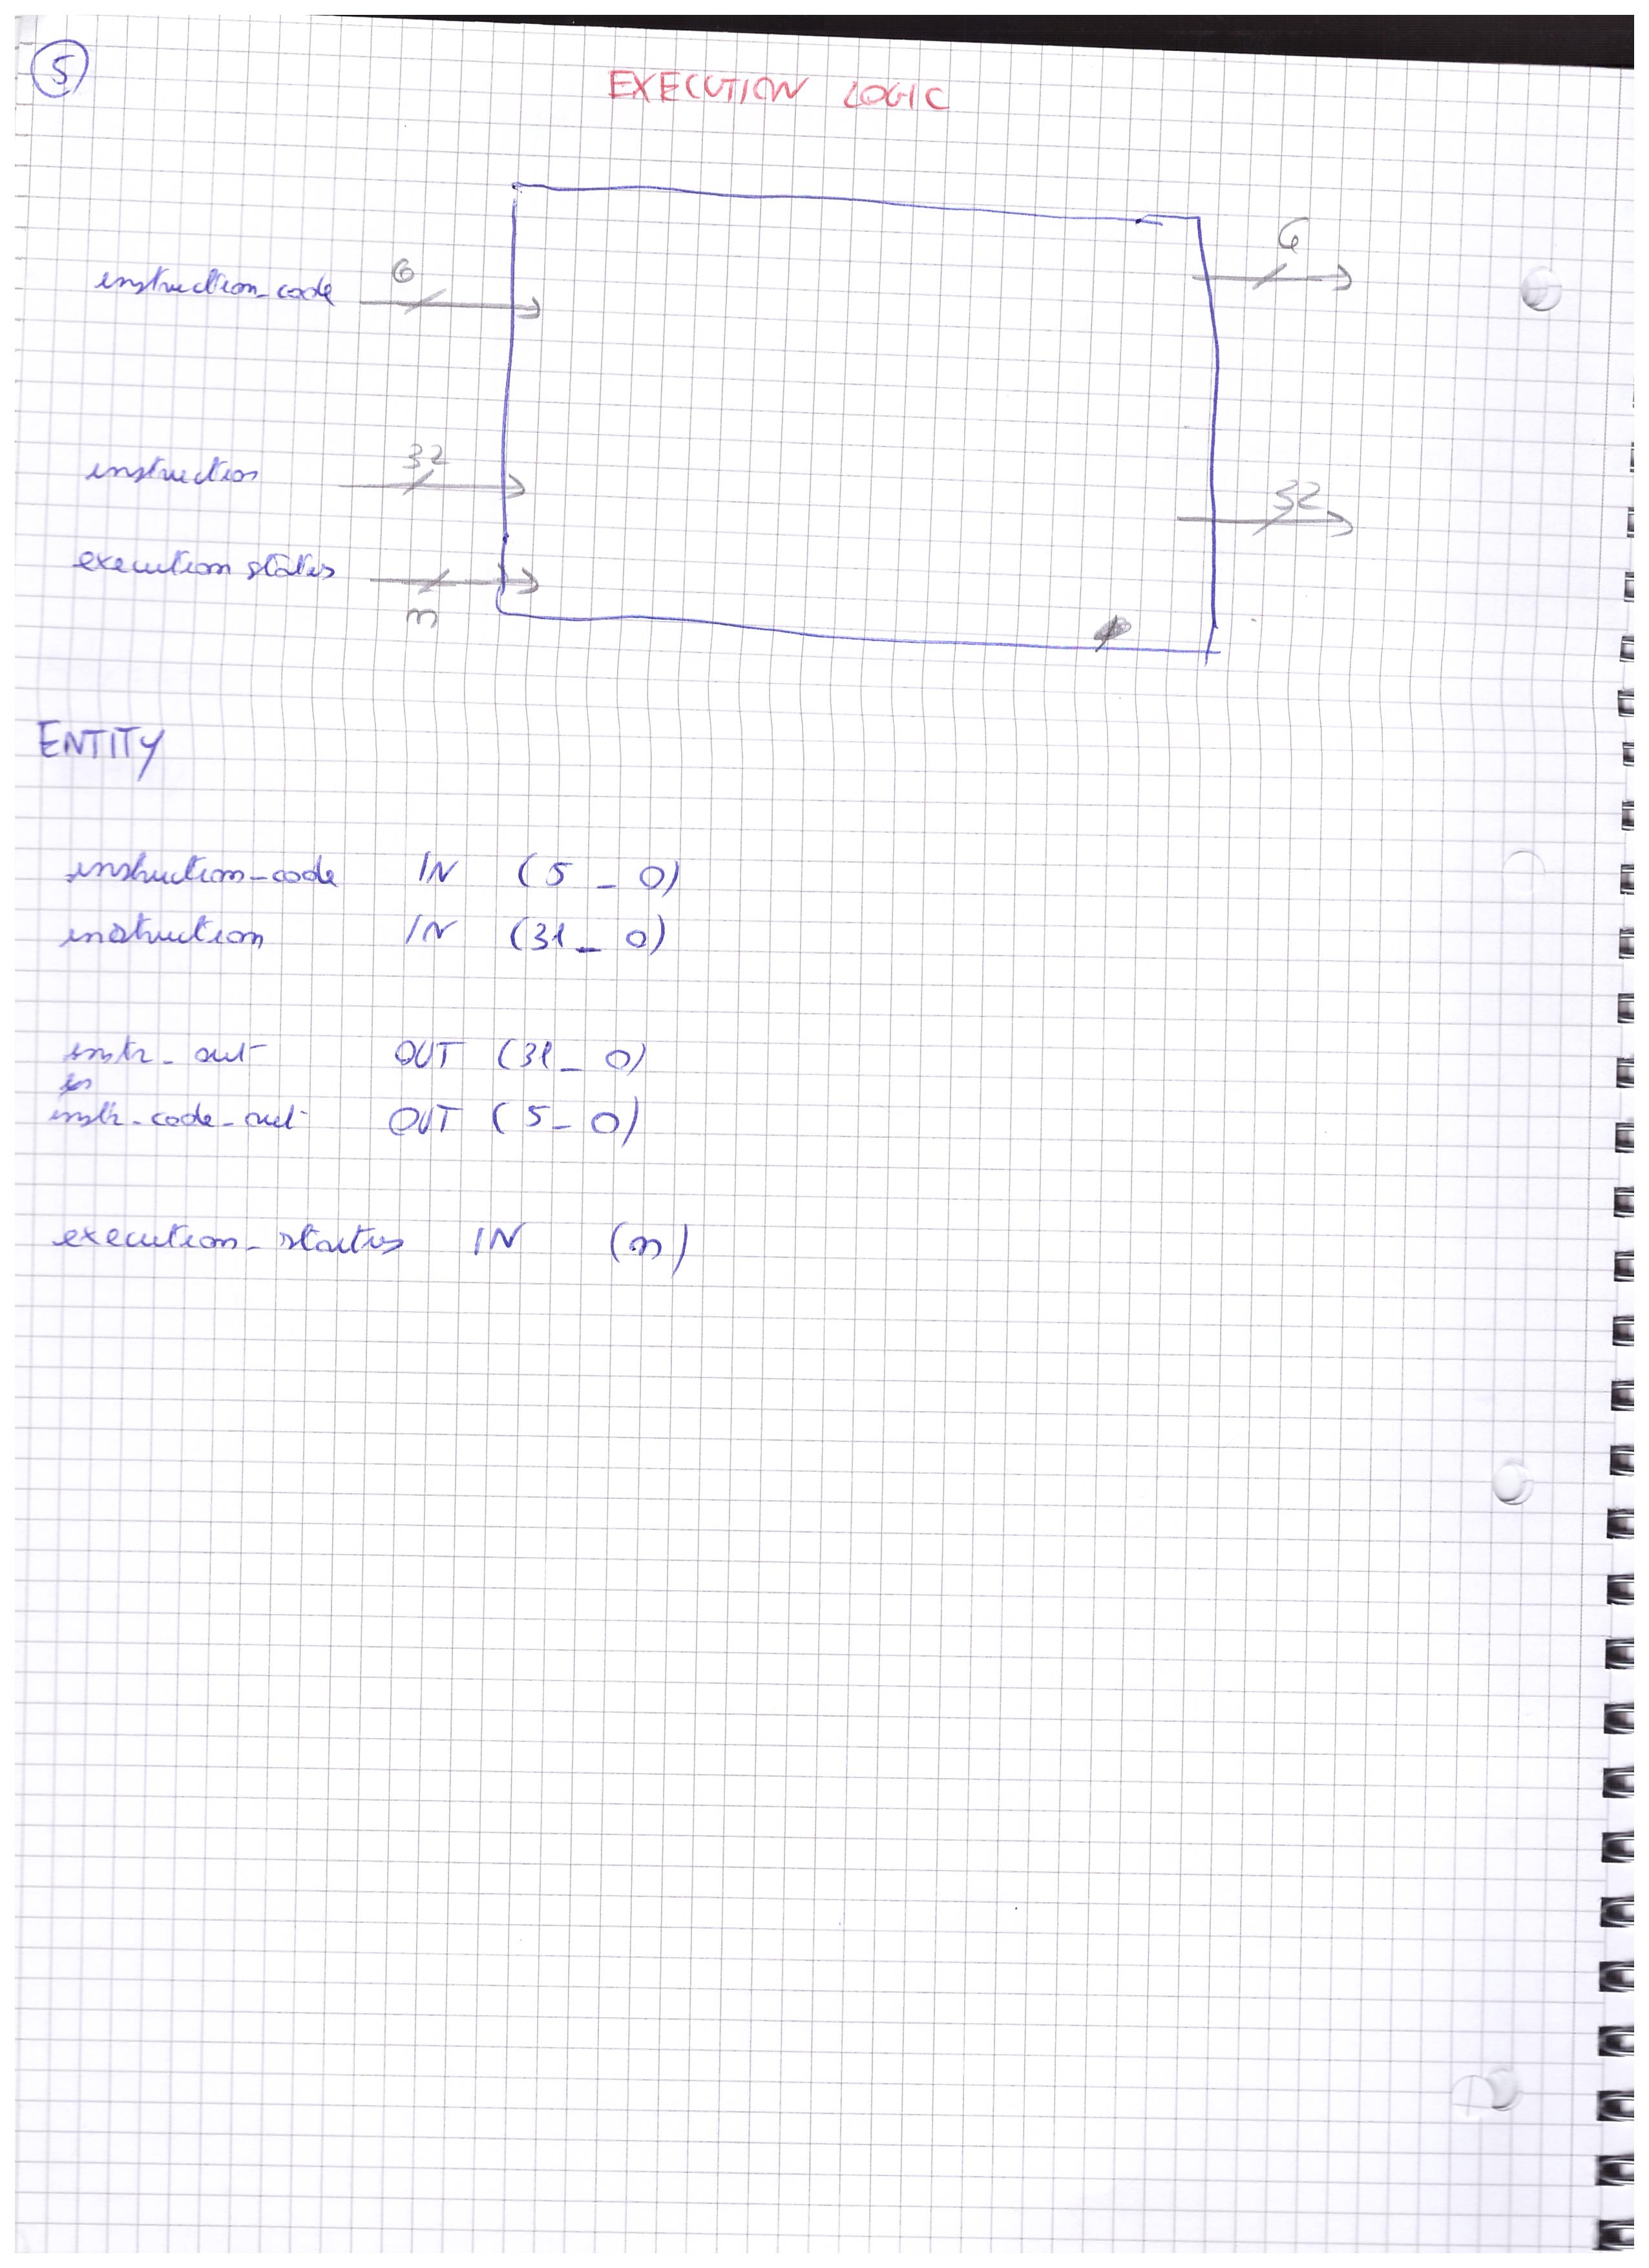 5
EXECUTION LOGIC
6
instruction_code
6
32
instruction
32
execution status
n
ENTITY
instruction_code IN (5_0)
instruction IN (31_0)
instr_out OUT (31_0)
instr_code_out OUT (5_0)
execution_status IN (n)